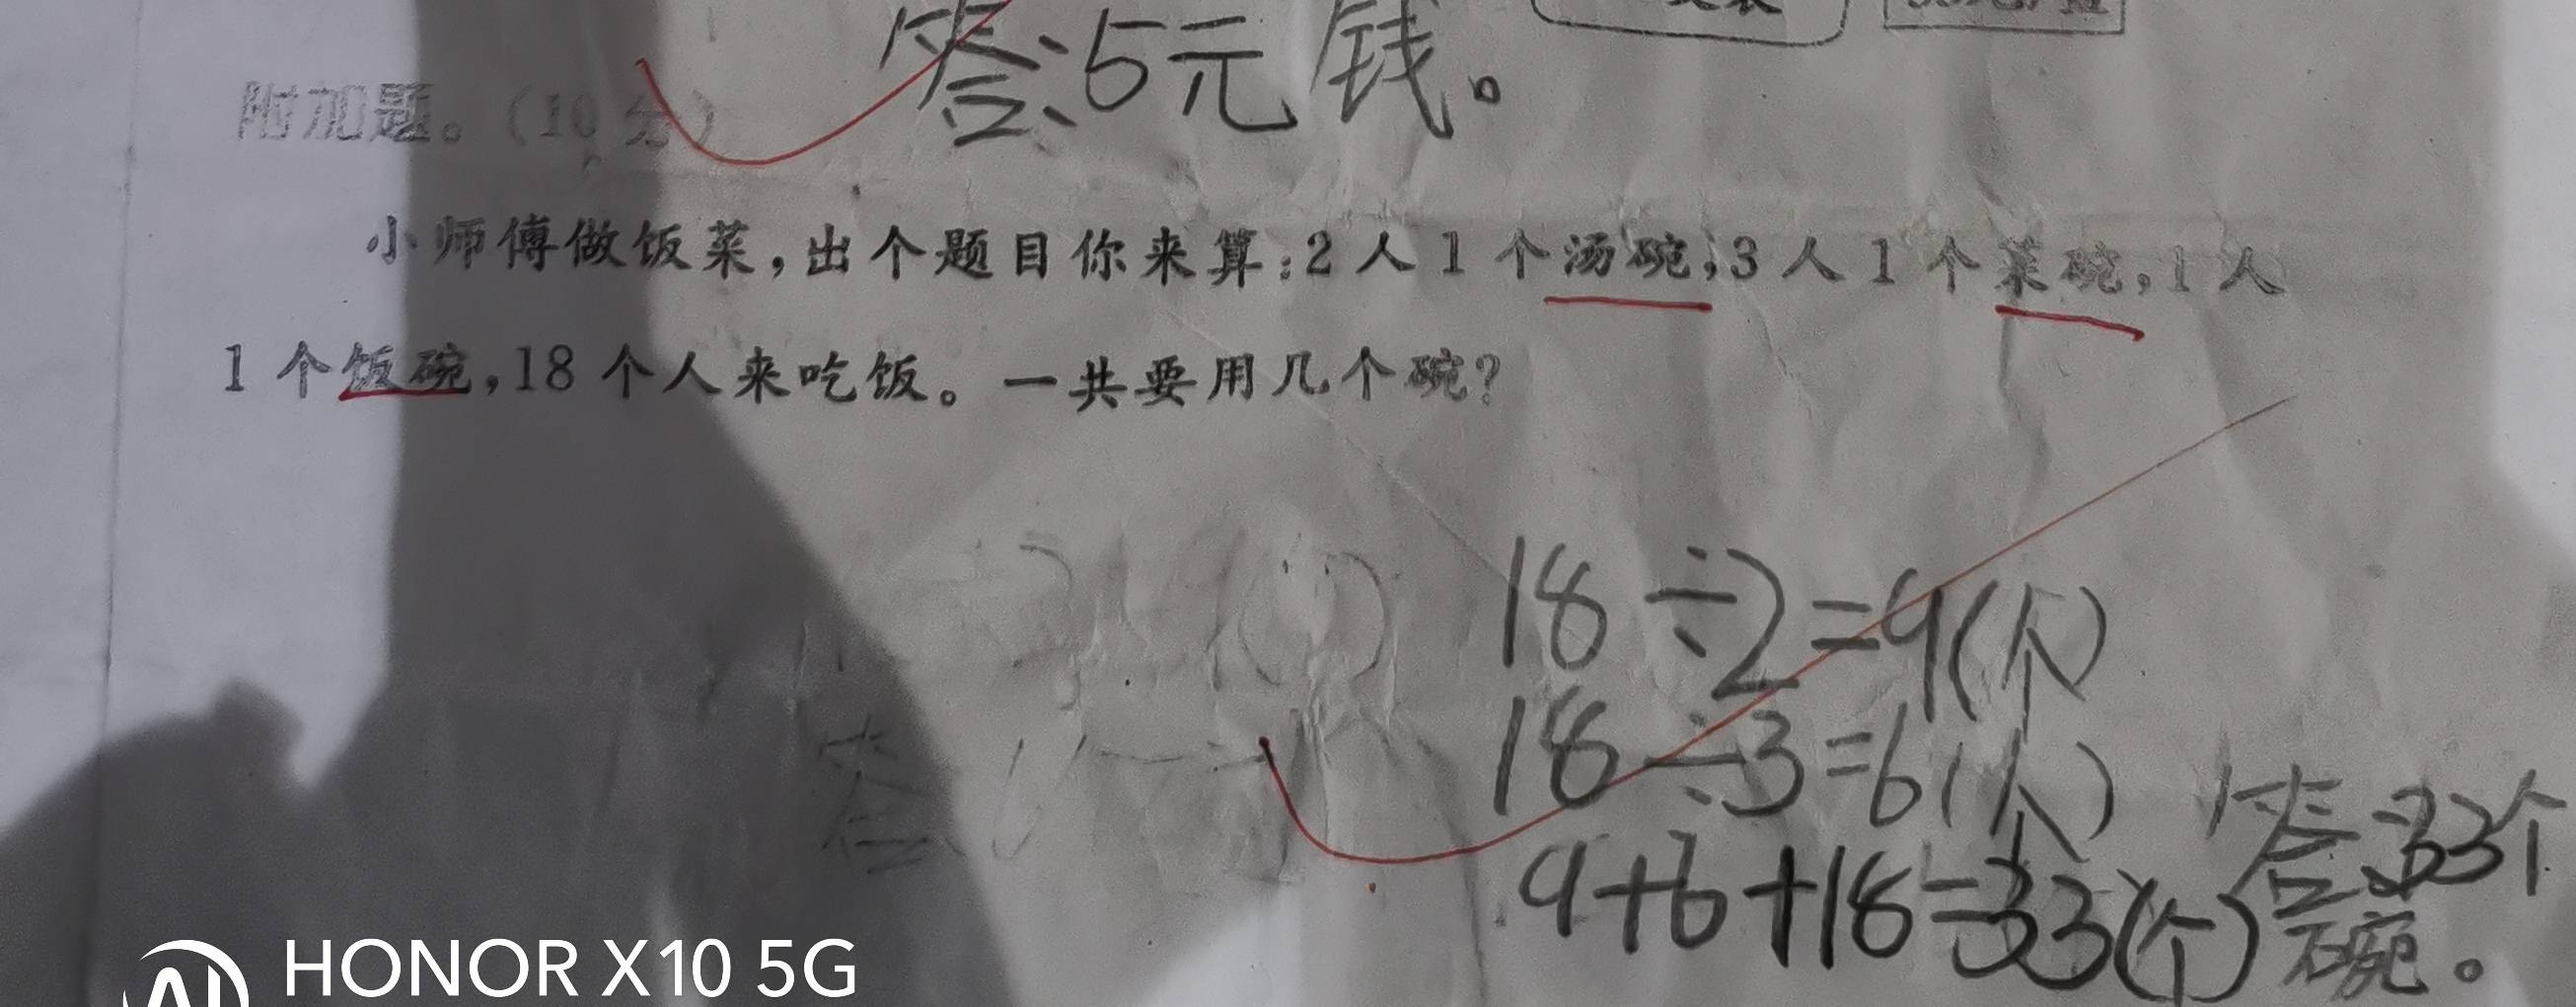 答:5元钱。
附加题。(10分)
小师傅做饭菜,出个题目你来算:2人1个汤碗,3人1个菜碗,1人
1个饭碗,18个人来吃饭。一共要用几个碗?
18÷2=9(个)
18÷3=6(个)
9+6+18=33(个)
答:33个
碗。
HONOR X10 5G